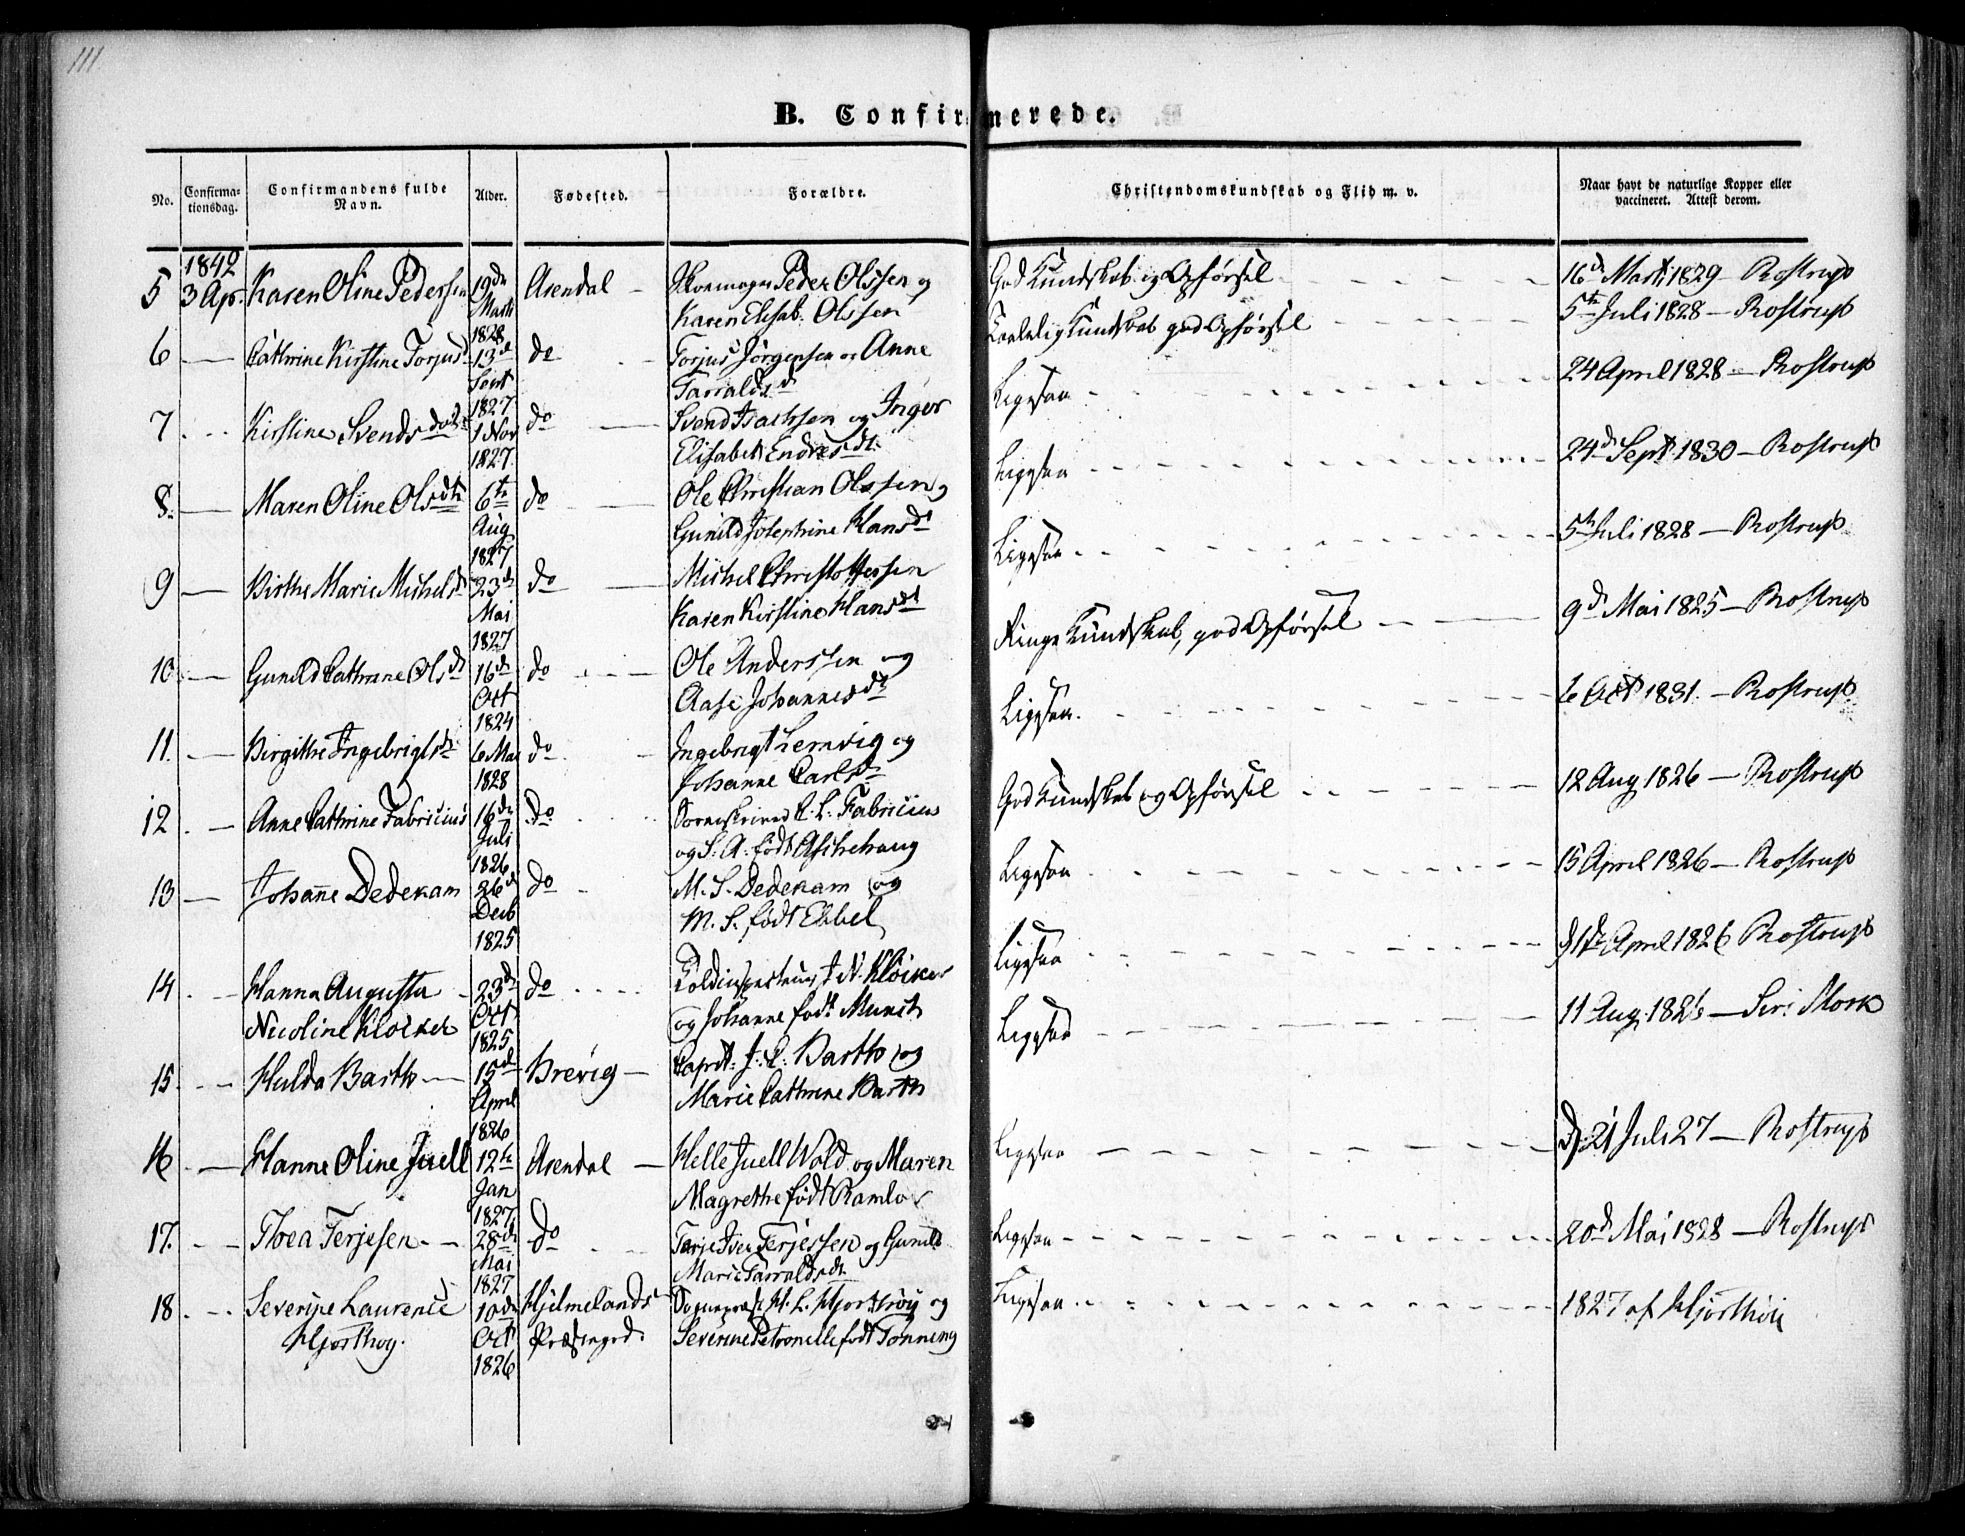 111.
B. Confirmerede.
No. Confirmationsdag. Confirmandens fulde Navn. Alder. Fødested. Forældre. Christendomskundskab og Flid m. v. Naar havt de naturlige Kopper eller vaccineret. Attest derom.
1842
5 3 Apr. Karen Oline Pedersen 19de Marts 1828 Arendal Peder Olssen og Karen Elisab. Olssen God Kundskab og Opførsel 16de Marts 1829 — Rostrup
6 — Cathrine Kirstine Torjusd 13de Sept 1827 do Torjus Jørgensen og Anne Tarraldsd Kundskab god Opførsel 5te Juli 1828 — Rostrup
7 Kirstine Svendsdatt 1 Nov 1827 do Svend Isachsen og Inger Elisabeth Endresdt. Ligesaa 24 April 1828 — Rostrup
8. — Maren Oline Olsdtr 6te Aug 1827 do Ole Christian Olssen og Gunild Josephine Hansdt Ligesaa 24de Sept 1830 — Rostrup
9 — Birthe Marie Michelsd 23de Mai 1827 do Michel Christoffersen Karen Kirstine Hansdt Ligesaa 5te Juli 1828 — Rostrup
10. — Gunild Cathrine Olsdt 16de Oct 1824 do Ole Anderssen og Aase Johannesdt Ringe Kundskab, god Opførsel 9de Mai 1825 — Rostrup
11. — Birgithe Ingebrigtsdt 6 Mai 1828 do Ingebrigt Lemvig og Johanne Carlsdt Ligesaa. 6 Oct 1831. — Rostrup
12. — Anne Cathrine Fabricius 16de Juli 1826 do Sorenskriver C. L. Fabricius og S. A. født Aschehoug God Kundskab og Opførsel 12 Aug 1826 — Rostrup
13 — Johanne Dedekam 26d Decb 1825 do M. S. Dedekam og M. S. født Ebbel Ligesaa 15 April 1826 — Rostrup
14 — Hanna Augusta Nicoline Kløcker 23de Oct 1825 do Toldinspecteur J. N. Kløcker og Johanne født Munch Ligesaa April 1826 Rostrup
15 — Hulda Barth 15de April 1826 Brevig Capit: J. C. Barth og Marie Cathrine Barth Ligesaa 11 Aug. 1826 — Mork
16 — Hanne Oline Juell 12te Jan 1827 Arendal Helle Juell Wold og Maren Magrethe født Ramlov Ligesaa d. 21 Juli 27 — Rostrup
17. — Thea Terjesen 28de Mai 1827 do Tarje Iver Terjessen og Gunild Marie Tarraldsdt Ligesaa 20de Mai 1828 — Rostrup
18 Severine Laurence Hjorthøy. 10de Oct 1826 Hjelmelands Præstegjd. Sognepræst H. L. Hjorthøy og Severine Petronelle født Tønning Ligesaa 1827 af Hjorthøi